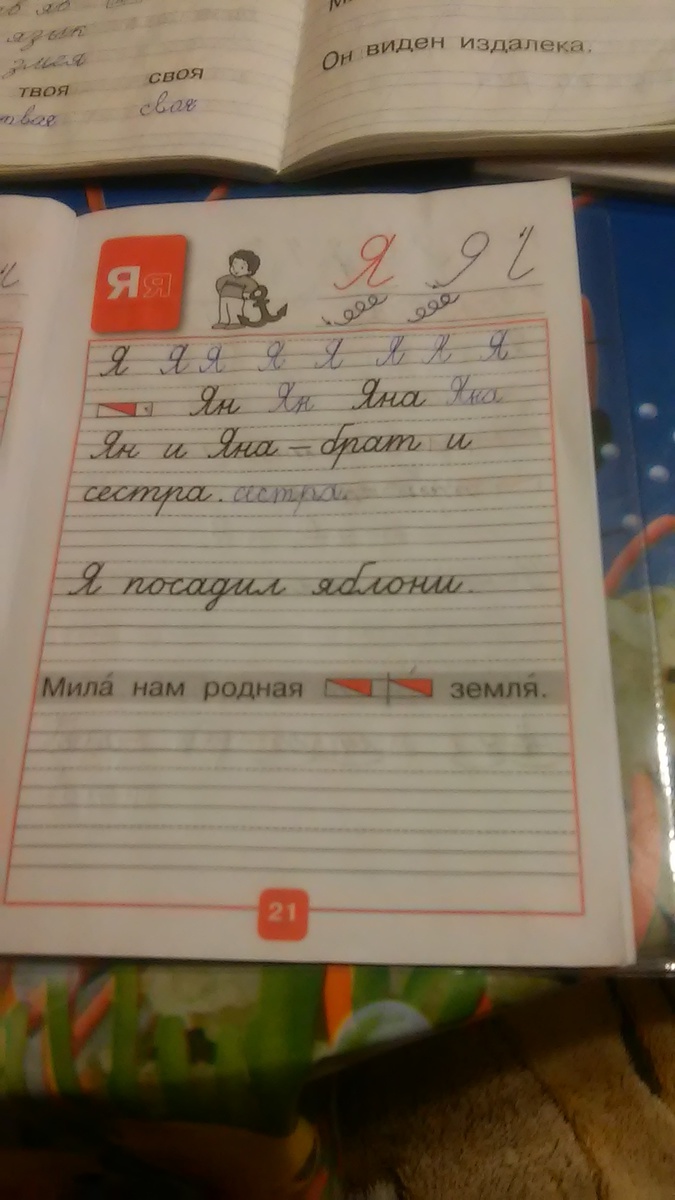 язык
змея
твоя своя
твоя своя
Он виден издалека.
Яя Я
Я Я Я Я Я Я Я Я
Ян Ян Яна Яна
Ян и Яна – брат и
сестра. сестра
Я посадил яблони.
Мила́ нам родная земля́.
21